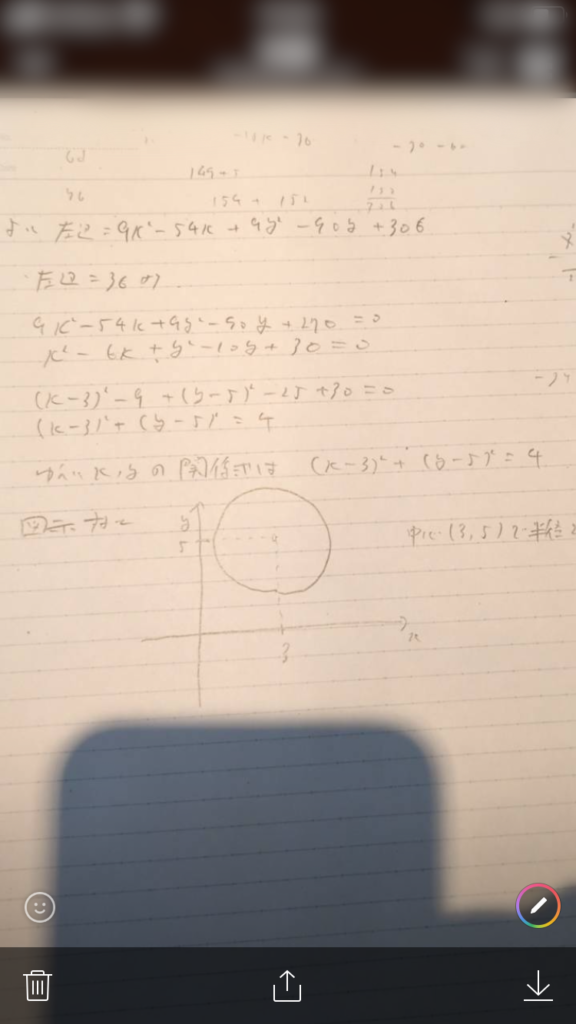 -30 -60
よって 左辺 = 9x² - 54x + 9y² - 90y + 306
左辺 = 36 より
9x² - 54x + 9y² - 90y + 270 = 0
x² - 6x + y² - 10y + 30 = 0
(x-3)² - 9 + (y-5)² - 25 + 30 = 0
(x-3)² + (y-5)² = 4
ゆえに x, y の関係式は (x-3)² + (y-5)² = 4
図示すると
y
5
中心 (3, 5) で半径 2
x
3